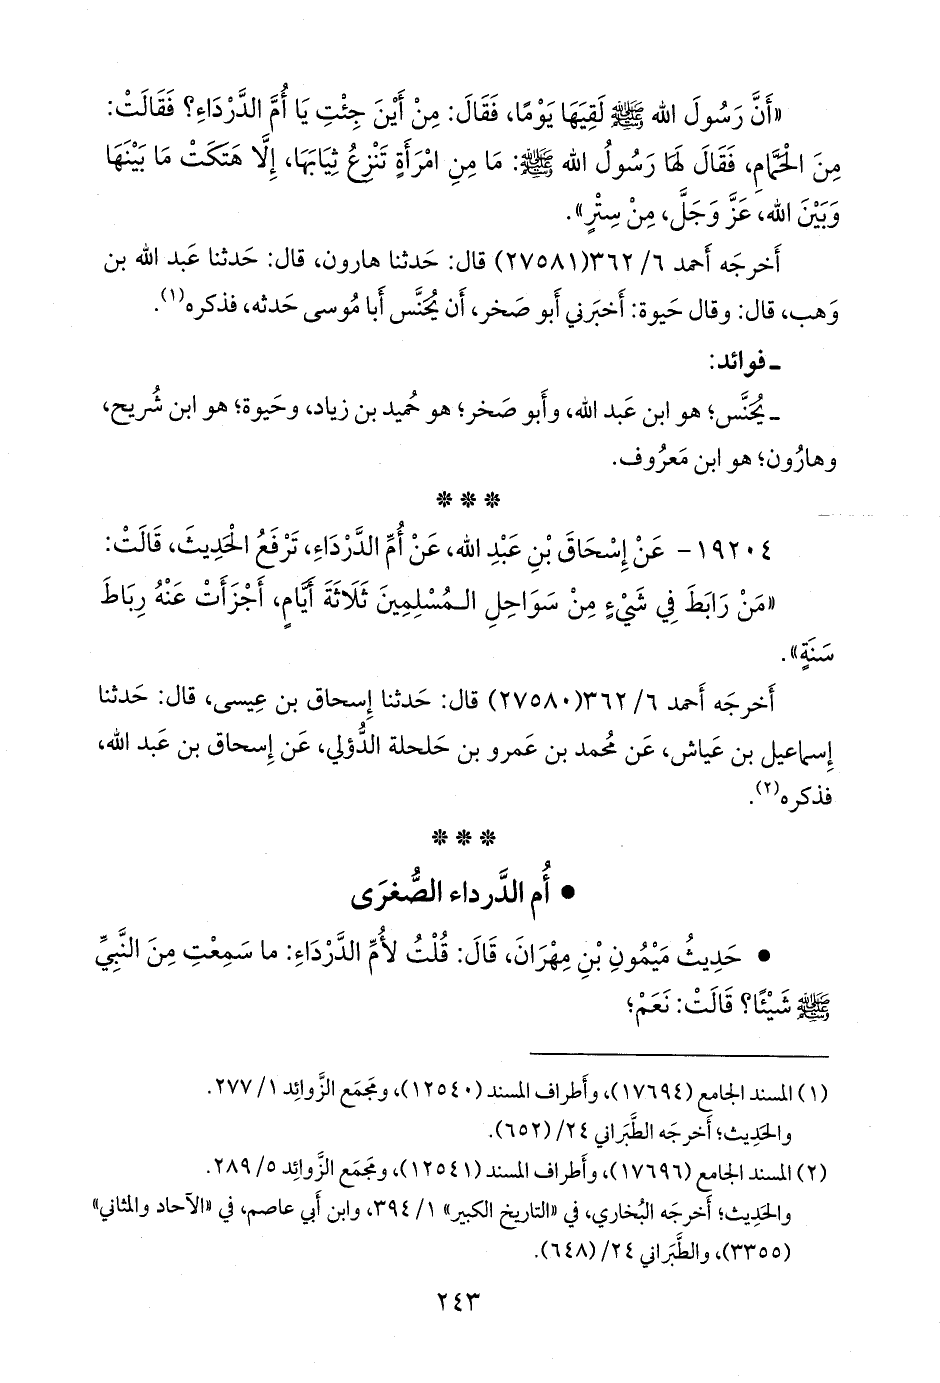 «أَنَّ رَسُولَ الله ﷺ لَقِيَهَا يَوْمًا، فَقَالَ: مِنْ أَيْنَ جِئْتِ يَا أُمَّ الدَّرْدَاءِ؟ فَقَالَتْ:
مِنَ الْحَمَّامِ، فَقَالَ لَهَا رَسُولُ الله ﷺ: مَا مِنِ امْرَأَةٍ تَنْزِعُ ثِيَابَهَا، إِلَّا هَتَكَتْ مَا بَيْنَهَا
وَبَيْنَ الله، عَزَّ وَجَلَّ، مِنْ سِتْرٍ».
أَخرجَه أَحمد ٦/ ٣٦٢(٢٧٥٨١) قال: حَدثنا هارون، قال: حَدثنا عَبد الله بن
وَهب، قال: وقال حَيوة: أَخبَرني أَبو صَخر، أَن يُحَنَّس أَبا مُوسى حَدثه، فذكره(١).
ـ فوائد:
ـ يُحَنَّس؛ هو ابن عَبد الله، وأَبو صَخر؛ هو حُميد بن زياد، وحَيوة؛ هو ابن شُريح،
وهارُون؛ هو ابن مَعرُوف.
* * *
١٩٢٠٤- عَنْ إِسْحَاقَ بْنِ عَبْدِ الله، عَنْ أُمِّ الدَّرْدَاءِ، تَرْفَعُ الْحَدِيثَ، قَالَتْ:
«مَنْ رَابَطَ فِي شَيْءٍ مِنْ سَوَاحِلِ الـمُسْلِمِينَ ثَلَاثَةَ أَيَّامٍ، أَجْزَأَتْ عَنْهُ رِبَاطَ
سَنَةٍ».
أَخرجَه أَحمد ٦/ ٣٦٢(٢٧٥٨٠) قال: حَدثنا إِسحاق بن عِيسى، قال: حَدثنا
إِسماعيل بن عَياش، عَن مُحمد بن عَمرو بن حَلحلة الدُّؤلي، عَن إِسحاق بن عَبد الله،
فذكره(٢).
* * *
• أُم الدَّرداء الصُّغرَى
• حَدِيثُ مَيْمُونِ بْنِ مِهْرَانَ، قَالَ: قُلْتُ لأُمِّ الدَّرْدَاءِ: ما سَمِعْتِ مِنَ النَّبِيِّ
ﷺ شَيْئًا؟ قَالَتْ: نَعَمْ؛
(١) المسند الجامع (١٧٦٩٤)، وأَطراف المسند (١٢٥٤٠)، ومَجمَع الزَّوائِد ١/ ٢٧٧.
والحَدِيث؛ أَخرجَه الطَّبَراني ٢٤/ (٦٥٢).
(٢) المسند الجامع (١٧٦٩٦)، وأَطراف المسند (١٢٥٤١)، ومَجمَع الزَّوائِد ٥/ ٢٨٩.
والحَدِيث؛ أَخرجَه البُخاري، في «التاريخ الكبير» ١/ ٣٩٤، وابن أَبي عاصم، في «الآحاد والمثاني»
(٣٣٥٥)، والطَّبَراني ٢٤/ (٦٤٨).
٢٤٣